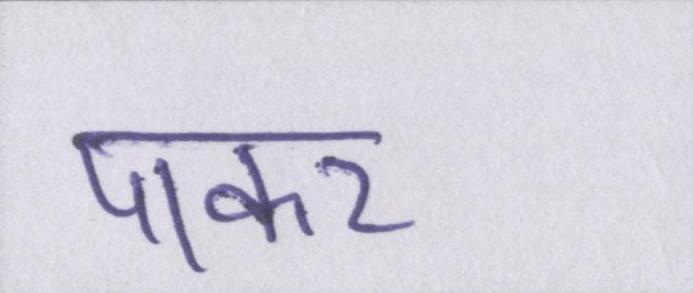 पाकर